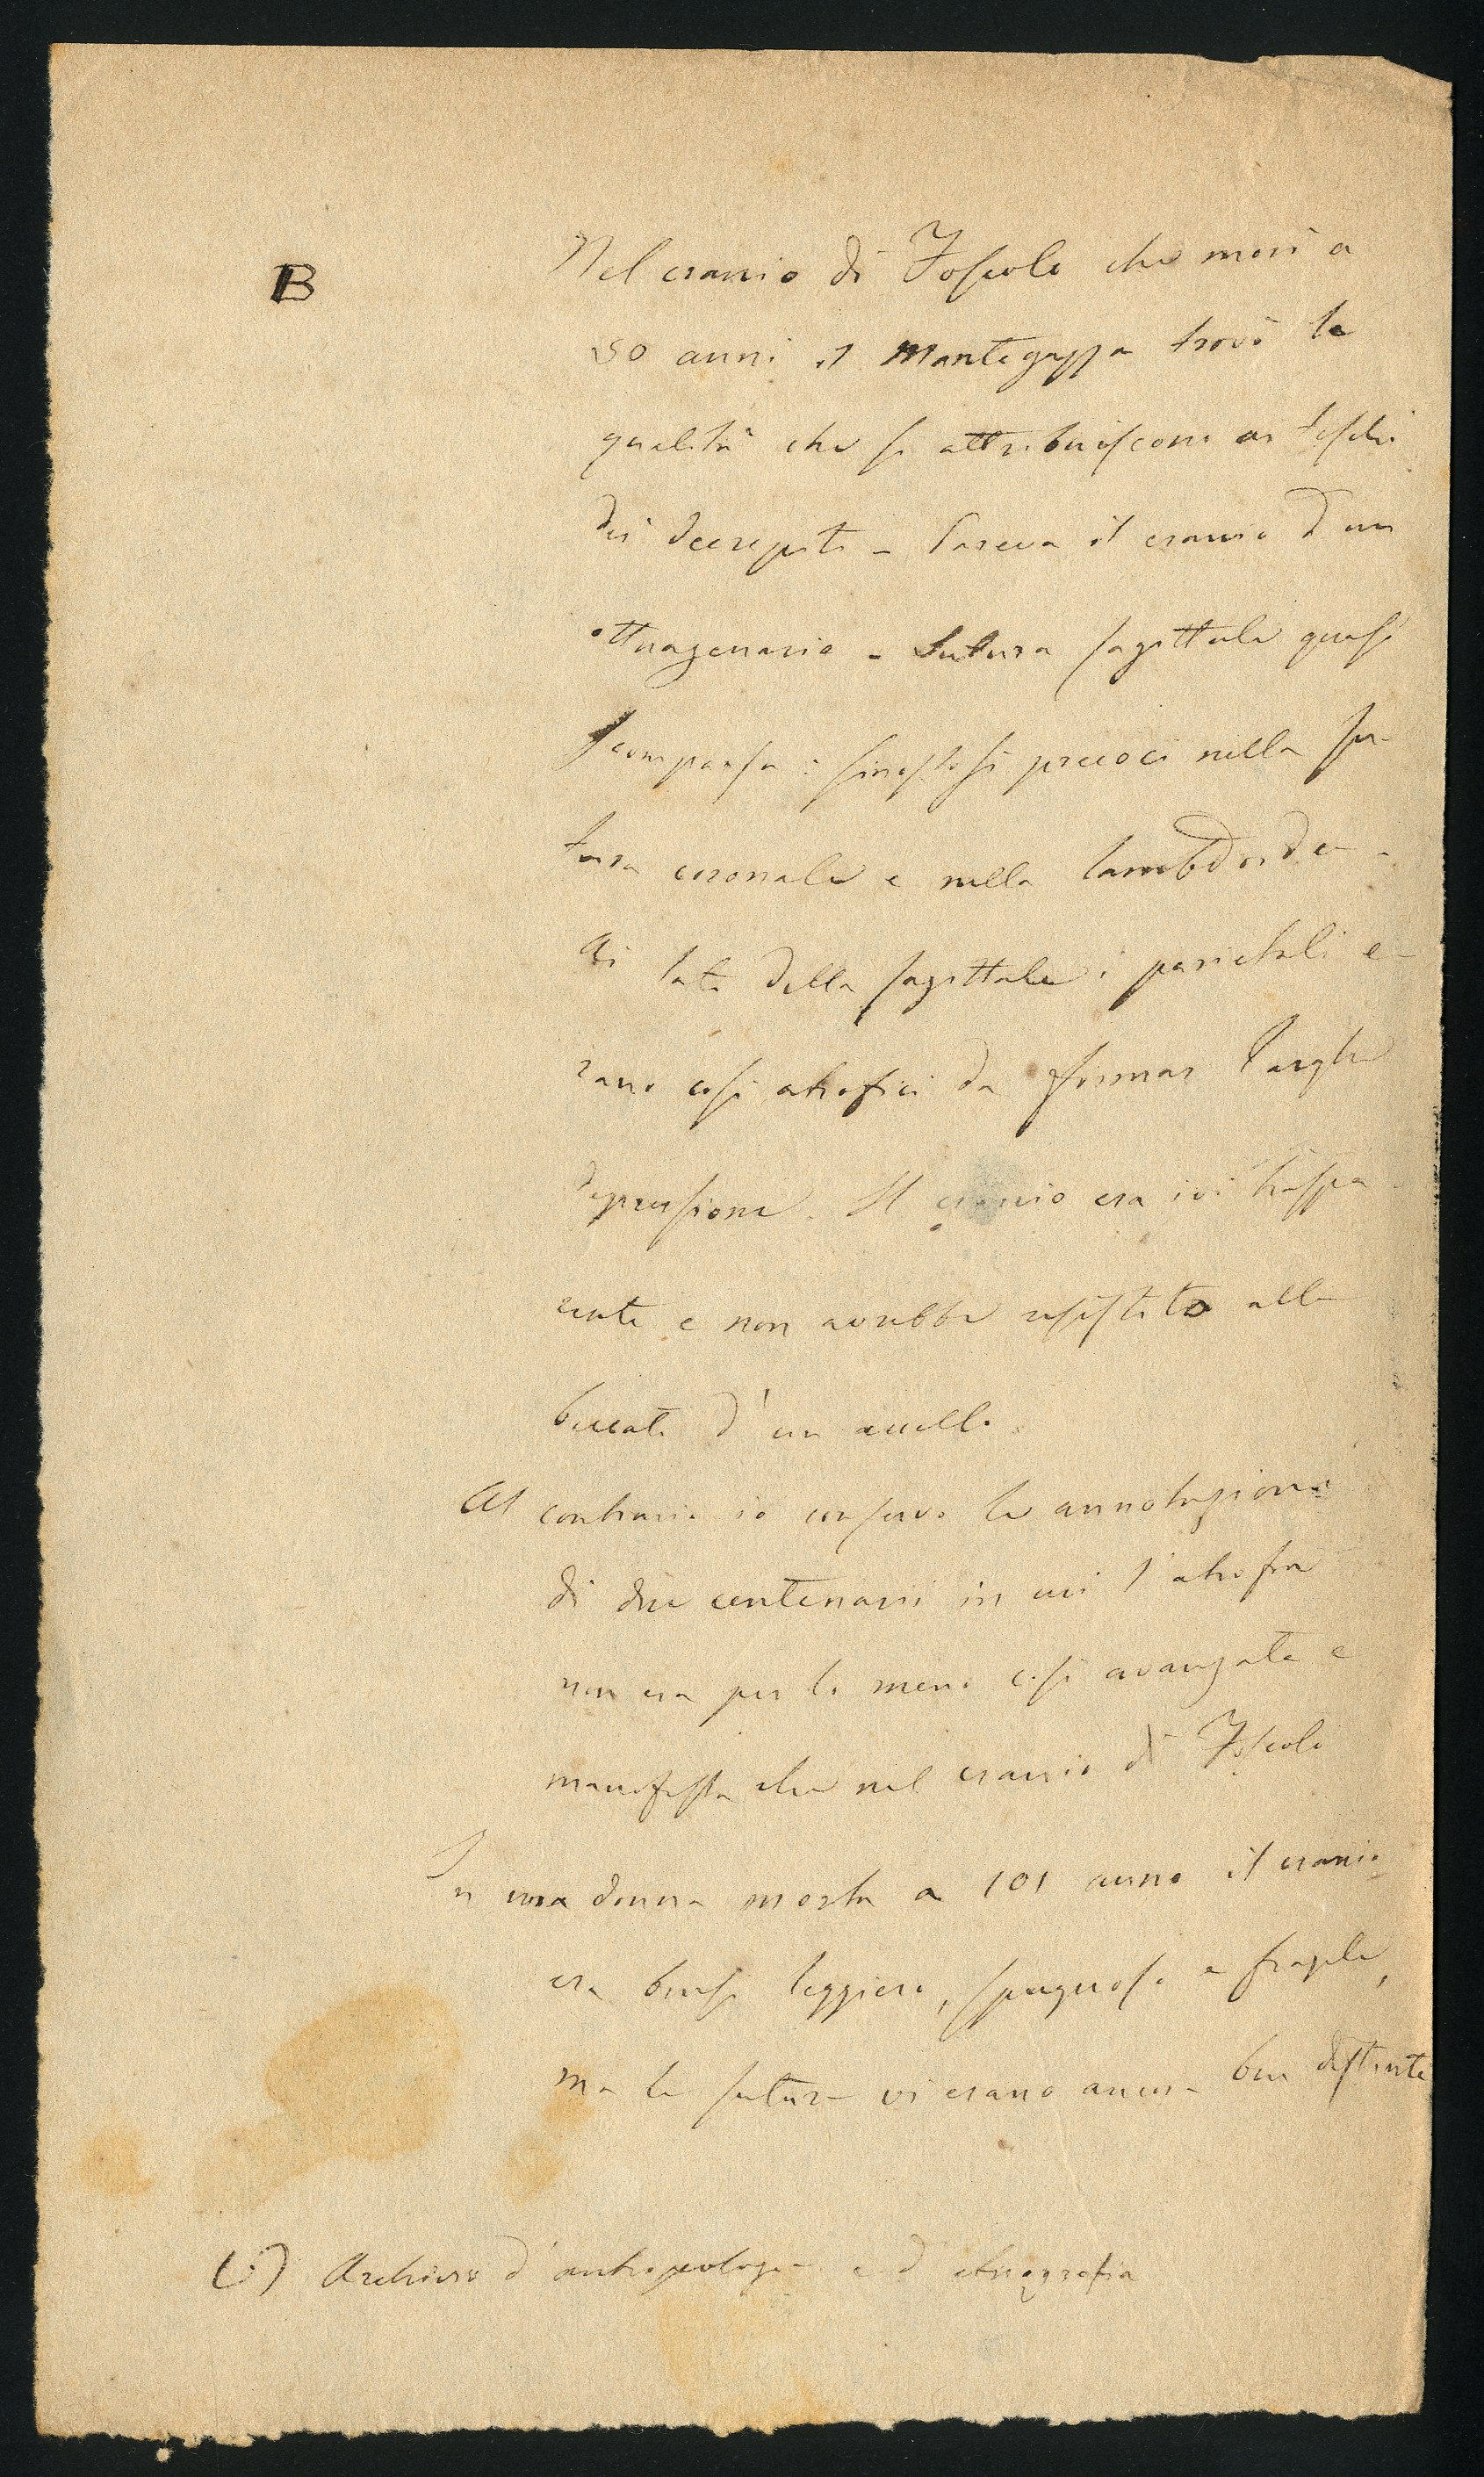 B
Nel cranio di Foscolo che morì a
50 anni il Mantegazza trovò le
qualità che si attribuiscono ai teschi
dei decrepiti – Pareva il cranio d'un
ottuagenario – Sutura sagittale quasi
scomparsa : sinostosi precoci nella su-
tura coronale e nella lambdoidea –
Ai lati della sagittale i parietali e-
rano così atrofici da formar larghe
depressioni. Il cranio era ivi traspa-
rente e non avrebbe resistito alle
beccate d'un uccello.
Al contrario io conservo le annotazioni
di due centenarii in cui l'atrofia
non era per lo meno così avanzata e
manifesta che nel cranio di Foscolo
In una donna morta a 101 anno il cranio
era bensì leggiero, spugnoso e fragile,
ma le suture vi erano ancora ben distinte
(1) Archivio d'antropologia e d'etnografia